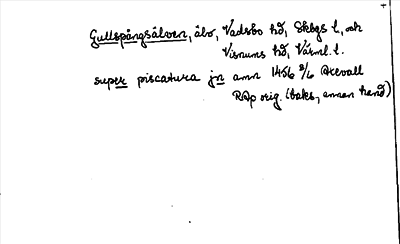 Gullspångsälven, älv, Vadsbo hd, Skbgs l, och
Visnums hd, Värml. l.
super piscatura jn amn 1456 8/6 Arevall
RAp orig. (baks, annan hand)